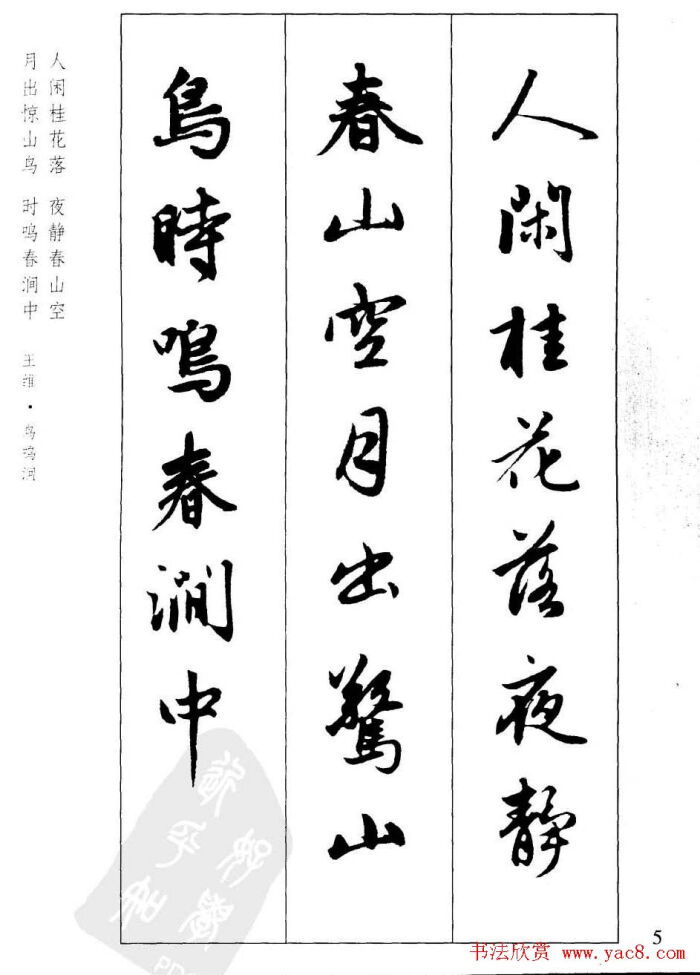 人閑桂花落夜靜
春山空月出驚山
鳥時鳴春澗中
人闲桂花落 夜静春山空
月出惊山鸟 时鸣春涧中 王维·鸟鸣涧
5
书法欣赏 www.yac8.com